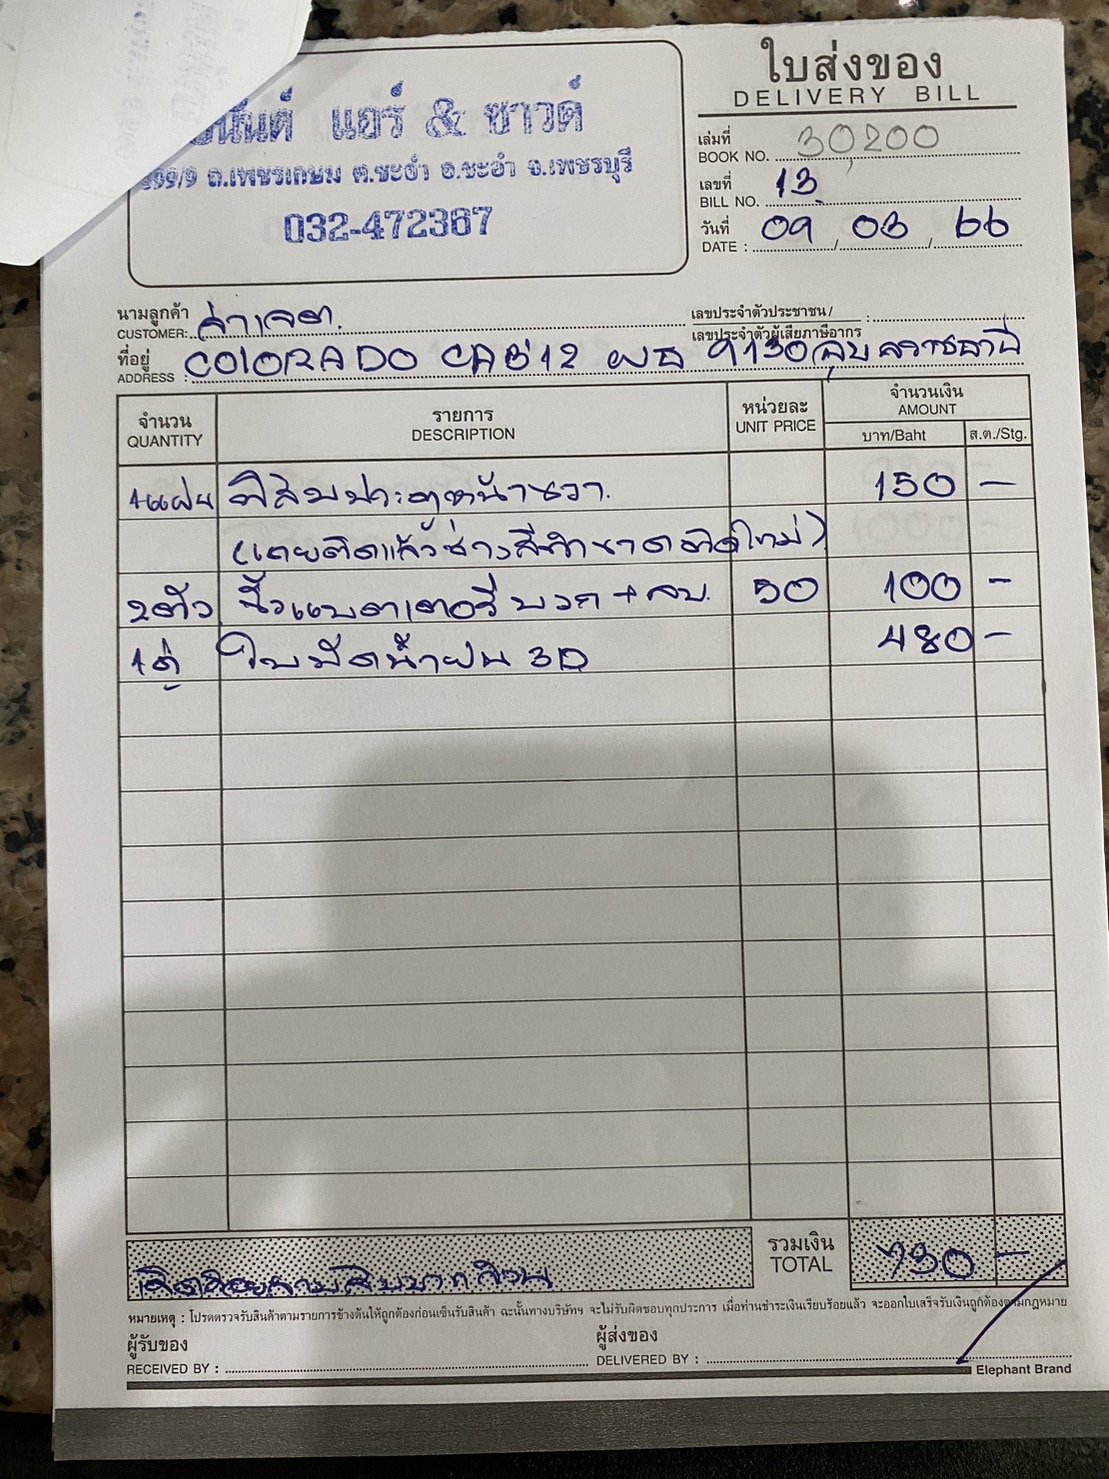 นันต์ แอร์ & ซาวด์
399/9 ถ.เพชรเกษม ต.ชะอำ อ.ชะอำ จ.เพชรบุรี
032-472367
ใบส่งของ
DELIVERY BILL
เล่มที่
BOOK NO. 30,200
เลขที่
BILL NO. 13
วันที่
DATE : 09 / 03 / 66
นามลูกค้า
CUSTOMER: ค่าเจต.
เลขประจำตัวประชาชน/
เลขประจำตัวผู้เสียภาษีอากร :
ที่อยู่
ADDRESS : COLORADO CAB'12 ผธ 9130 อุบลราชธานี
จำนวน รายการ หน่วยละ จำนวนเงิน
QUANTITY DESCRIPTION UNIT PRICE AMOUNT
บาท/Baht ส.ต./Stg.
1แผ่น ฟิล์มประตูหน้าขวา. 150 -
(เคยติดแล้วช่างสีทำขาดติดใหม่)
2ตัว ขั้วแบตเตอรี่ บวก + ลบ. 50 100 -
1คู่ ใบปัดน้ำฝน 3D 480 -
รวมเงิน
TOTAL 730 -
หมายเหตุ : โปรดตรวจรับสินค้าตามรายการข้างต้นให้ถูกต้องก่อนเซ็นรับสินค้า ฉะนั้นทางบริษัทฯ จะไม่รับผิดชอบทุกประการ เมื่อท่านชำระเงินเรียบร้อยแล้ว จะออกใบเสร็จรับเงินถูกต้องตามกฎหมาย
ผู้รับของ
RECEIVED BY :
ผู้ส่งของ
DELIVERED BY :
Elephant Brand